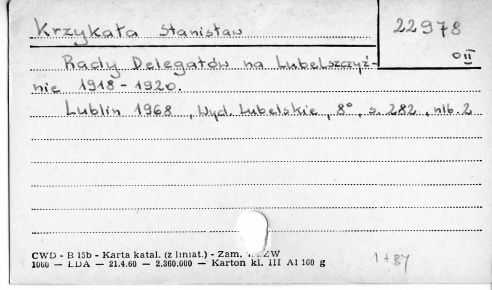 Krzykała Stanisław
22978
OII
Rady Delegatów na Lubelszczyź-
nie 1918-1920.
Lublin 1968, Wyd. Lubelskie, 8°, s. 282, nlb. 2
CWD - B 15b - Karta katal. (z liniat.) - Zam. ZW
1060 — ŁDA — 21.4.60 — 2.360.000 — Karton kl. III A1 160 g
1+87